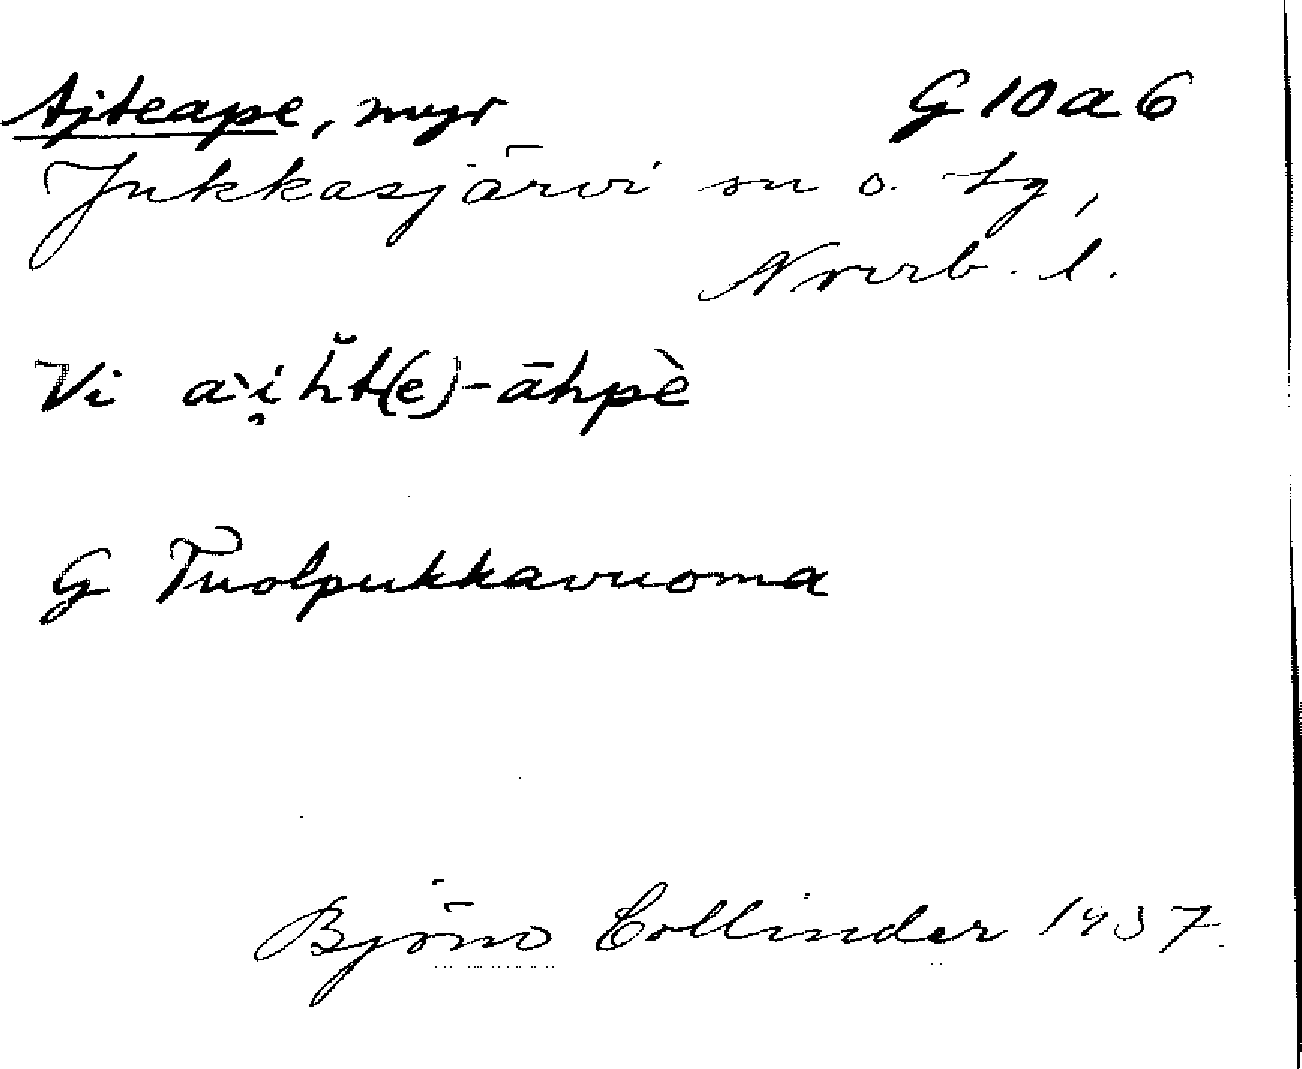 Ajteape, myr G10a6
Jukkasjärvi sn o. tg,
Norrb. l.
Vi a`i̯h̆t(e)-āhpè
G Tuolpukkavuoma
Björn Collinder 1937.